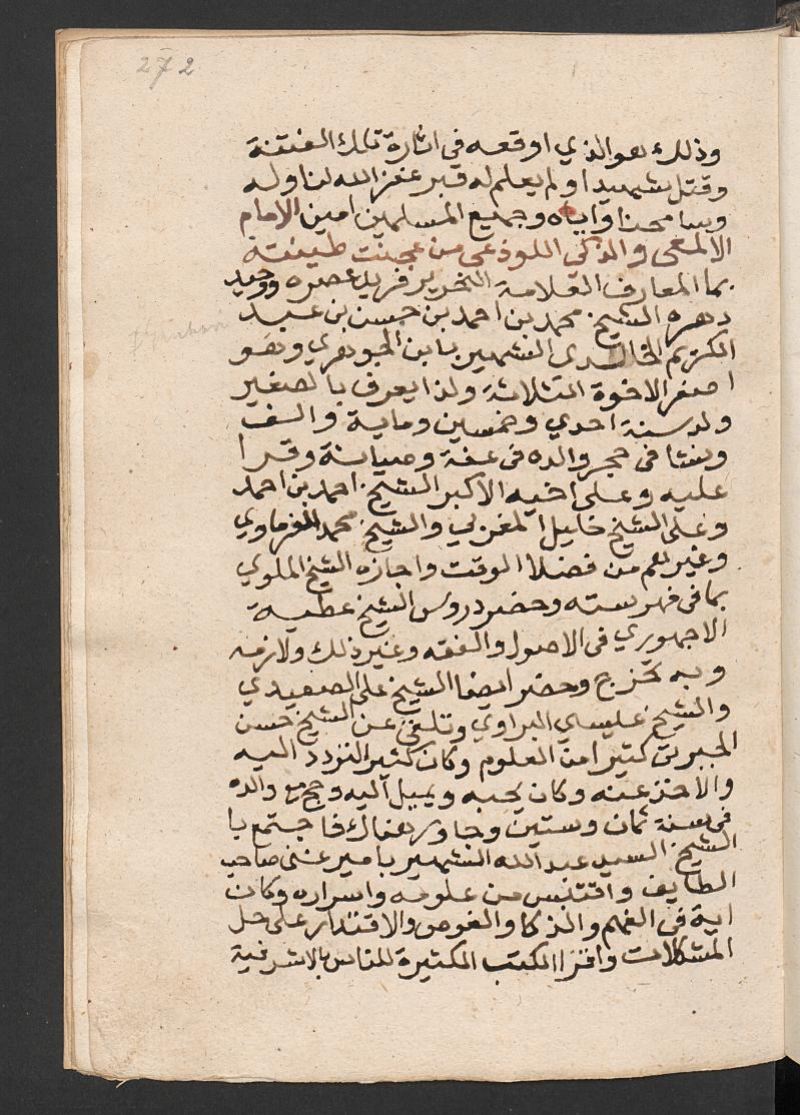 272
وذلك هو الذي اوقعه في اثارة تلك الفتنة
وقتل شهيدا ولم يعلم له قبر غفر الله لنا وله
وسامحنا واياه وجميع المسلمين امين الامام
الالمعى والذكى اللوذعى من عجنت طينته
بما المعارف العلامة النحرير فريد عصره ووحيد
دهره الشيخ محمد بن احمد بن حسن بن عبد
الكريم الخالدى الشهير بابن الجوهري وهو
اصغر الاخوة الثلاثة ولذا يعرف بالصغير
ولد سنة احدي وخمسين وماية والف
ونشا في حجر والده في عفة وصيانة وقرا
عليه وعلى اخيه الاكبر الشيخ احمد بن احمد
وعلى الشيخ خليل المغربي والشيخ محمد الفرماوي
وغيرهم من فضلا الوقت واجازه الشيخ الملوي
بما في فهرسته وحضر دروس الشيخ عطية
الاجهوري في الاصول والفقه وغير ذلك ولازمه
وبه تخرج وحضر ايضا الشيخ على الصعيدي
والشيخ عليسي البراوي وتلقى عن الشيخ حسن
الجبرتى كثيرا من العلوم وكان كثير التردد اليه
والاخذ عنه وكان يحبه ويميل اليه وحج مع والده
في سنة ثمان وستين وجاور هناك فاجتمع با
الشيخ السيد عبد الله الشهير بامير غنى صاحب
الطايف واقتبس من علومه واسراره وكان
اية في الفهم والذكا والغوص والاقتدار على حل
المشكلات واقرا الكتب الكثيرة للناس بالاشرفية